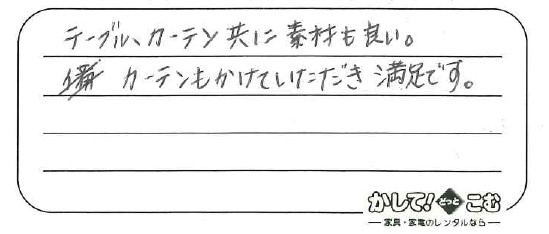 テーブル、カーテン共に素材も良い。
カーテンもかけていただき満足です。
かして!どっとこむ
家具・家電のレンタルなら